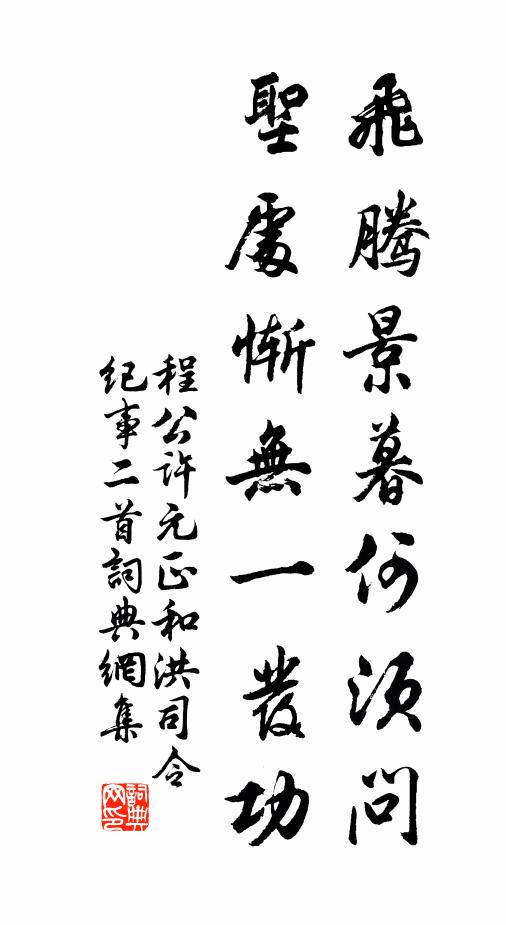 飛騰景暮何須問
聖處慚無一發功
程公許元正和洪司令
紀事二首詞典網集
詞典网印